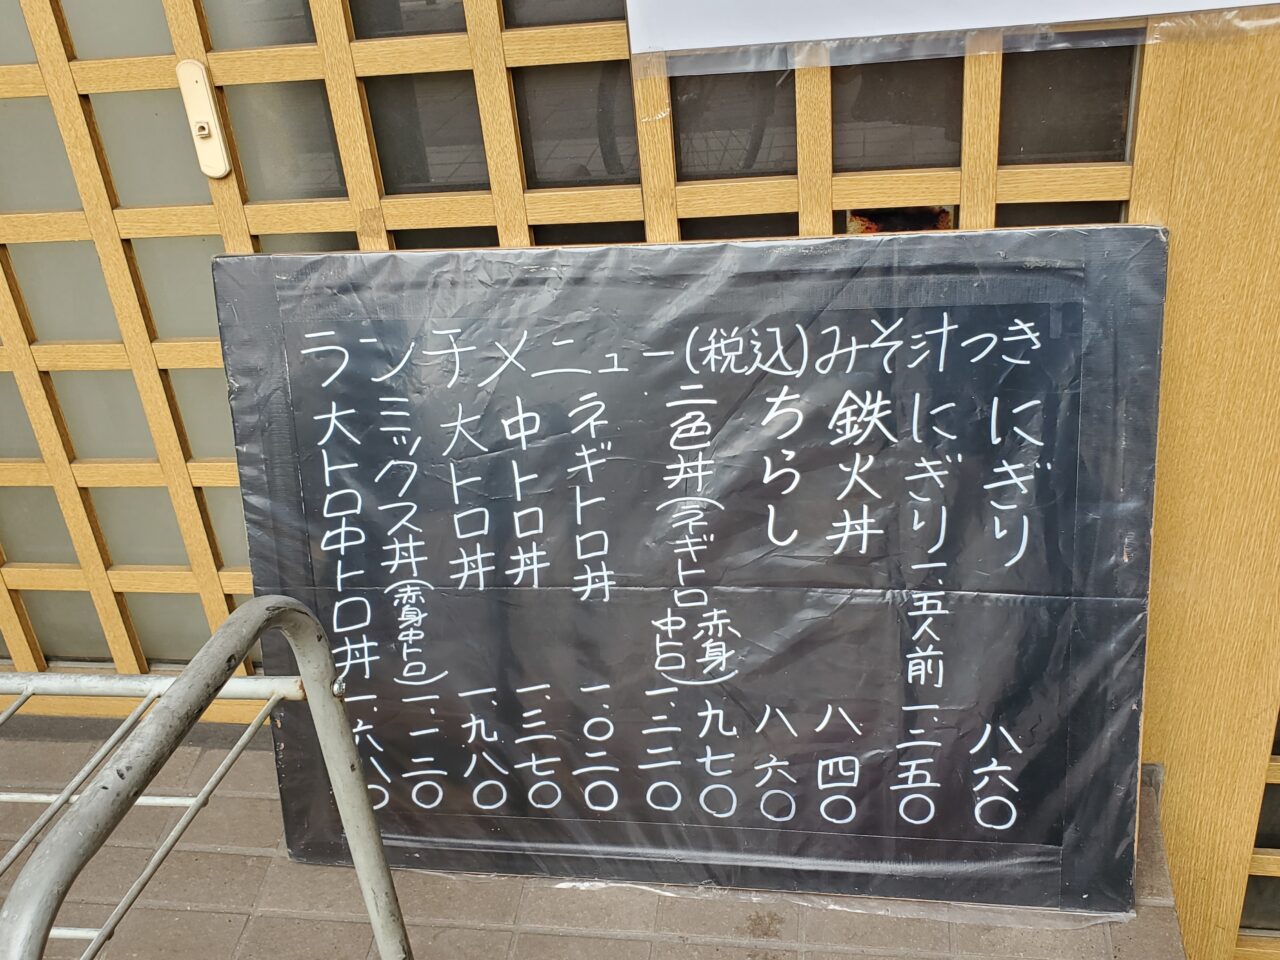 ランチメニュー(税込)みそ汁つき
にぎり 八六〇
にぎり一、五人前 一、二五〇
鉄火丼 八四〇
ちらし 八六〇
二色丼(ネギトロ 赤身) 九七〇
中トロ 一、二二〇
ネギトロ丼 一、〇二〇
中トロ丼 一、三七〇
大トロ丼 一、九八〇
ミックス丼(赤身中トロ) 一、一二〇
大トロ中トロ丼 一、六八〇